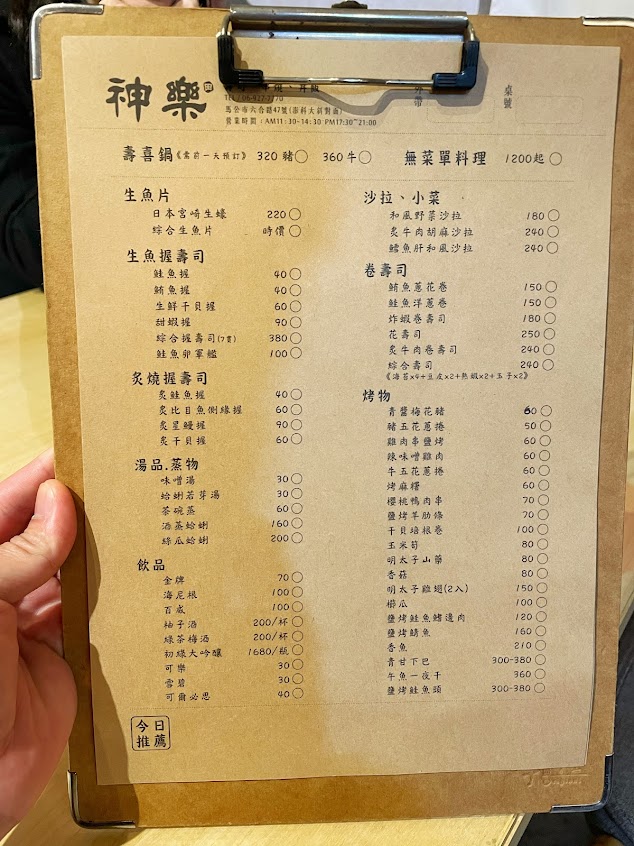 神樂
TEL:06-927-7770
馬公市六合路47號(澎科大斜對面)
營業時間:AM11:30-14:30 PM17:30~21:00
桌號
壽喜鍋《需前一天預訂》 320 豬○ 360 牛○ 無菜單料理 1200起 ○
生魚片
日本宮崎生蠔 220 ○
綜合生魚片 時價 ○
生魚握壽司
鮭魚握 40 ○
鮪魚握 40 ○
生鮮干貝握 60 ○
甜蝦握 90 ○
綜合握壽司(7貫) 380 ○
鮭魚卵軍艦 100 ○
炙燒握壽司
炙鮭魚握 40 ○
炙比目魚側緣握 60 ○
炙星鰻握 90 ○
炙干貝握 60 ○
湯品.蒸物
味噌湯 30 ○
蛤蜊若芽湯 30 ○
茶碗蒸 60 ○
酒蒸蛤蜊 160 ○
絲瓜蛤蜊 200 ○
飲品
金牌 70 ○
海尼根 100 ○
百威 100 ○
柚子酒 200/杯 ○
綠茶梅酒 200/杯 ○
初綠大吟釀 1680/瓶 ○
可樂 30 ○
雪碧 30 ○
可爾必思 40 ○
今日推薦
沙拉、小菜
和風野菜沙拉 180 ○
炙牛肉胡麻沙拉 240 ○
鱈魚肝和風沙拉 240 ○
卷壽司
鮪魚蔥花卷 150 ○
鮭魚洋蔥卷 150 ○
炸蝦卷壽司 180 ○
花壽司 250 ○
炙牛肉卷壽司 240 ○
綜合壽司 240 ○
《海苔x4+豆皮x2+熟蝦x2+玉子x2》
烤物
青醬梅花豬 60 ○
豬五花蔥捲 50 ○
雞肉串鹽烤 60 ○
辣味噌雞肉 60 ○
牛五花蔥捲 60 ○
烤麻糬 60 ○
櫻桃鴨肉串 70 ○
鹽烤羊肋條 70 ○
干貝培根卷 100 ○
玉米筍 80 ○
明太子山藥 80 ○
香菇 80 ○
明太子雞翅(2入) 150 ○
櫛瓜 100 ○
鹽烤鮭魚鰭邊肉 120 ○
鹽烤鯖魚 160 ○
香魚 210 ○
青甘下巴 300-380 ○
午魚一夜干 360 ○
鹽烤鮭魚頭 300-380 ○